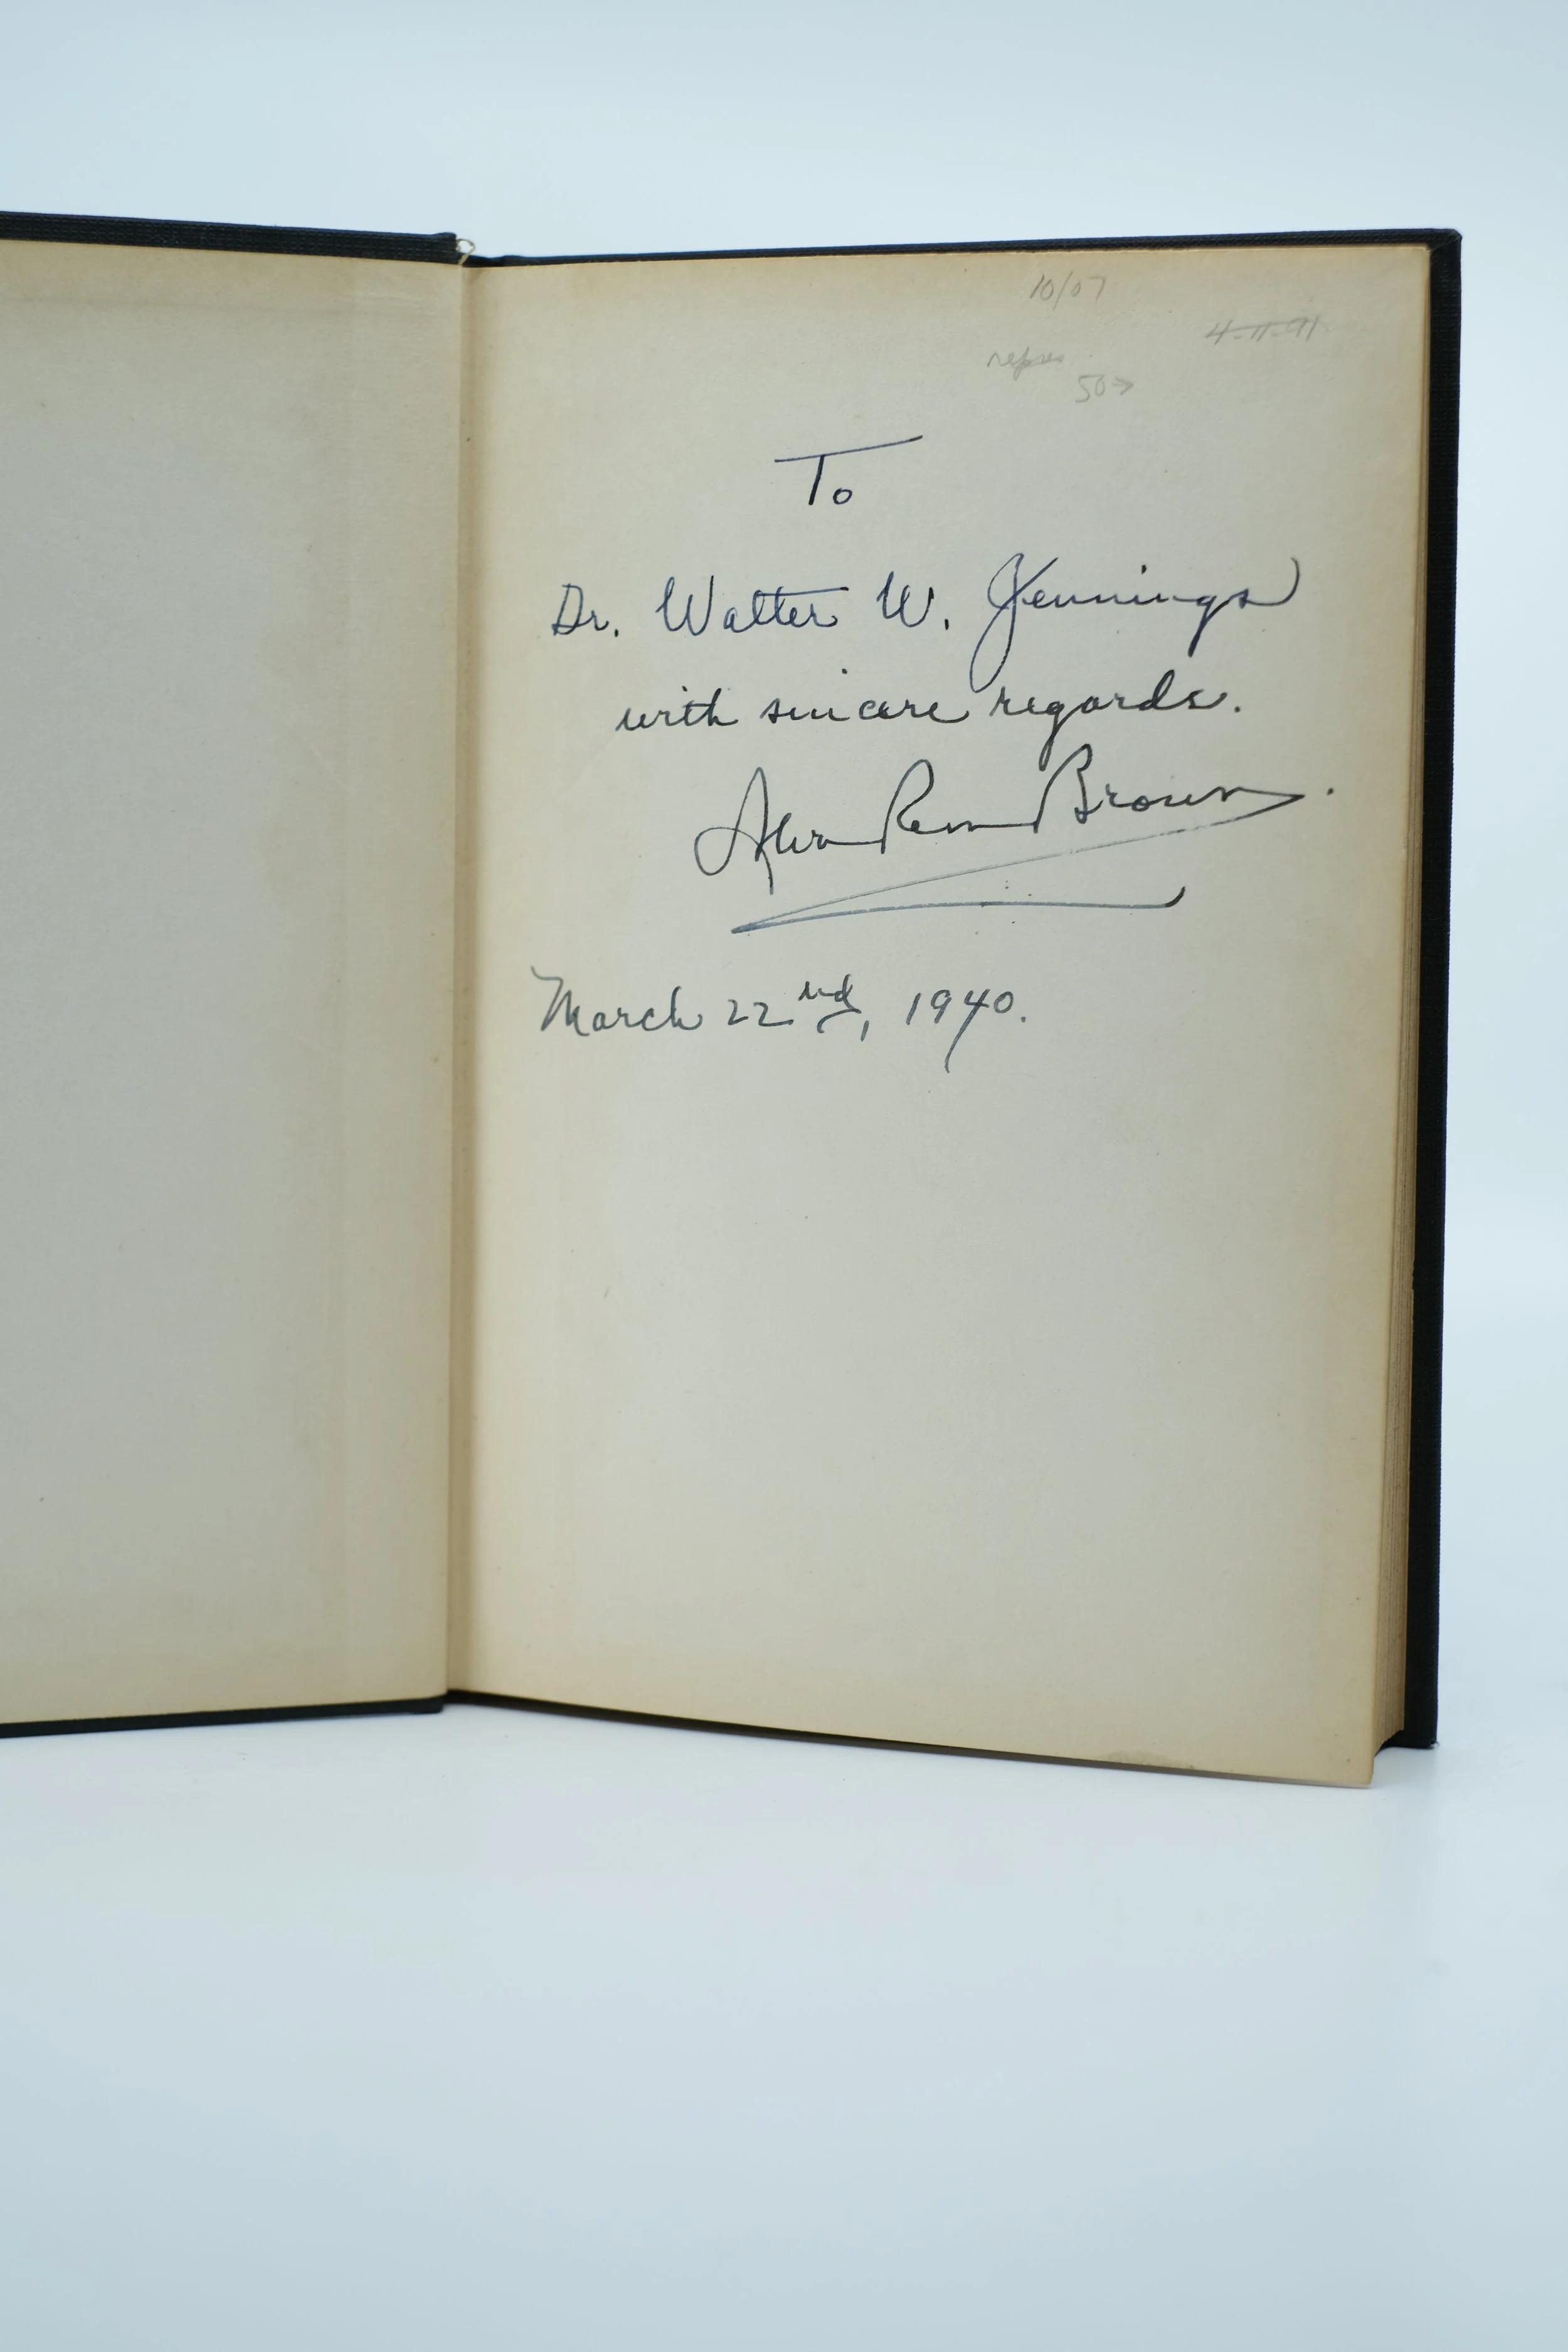 10/07
4-11-91
50
To
Dr. Walter W. Jennings
with sincere regards.
Brown.
March 22nd, 1940.